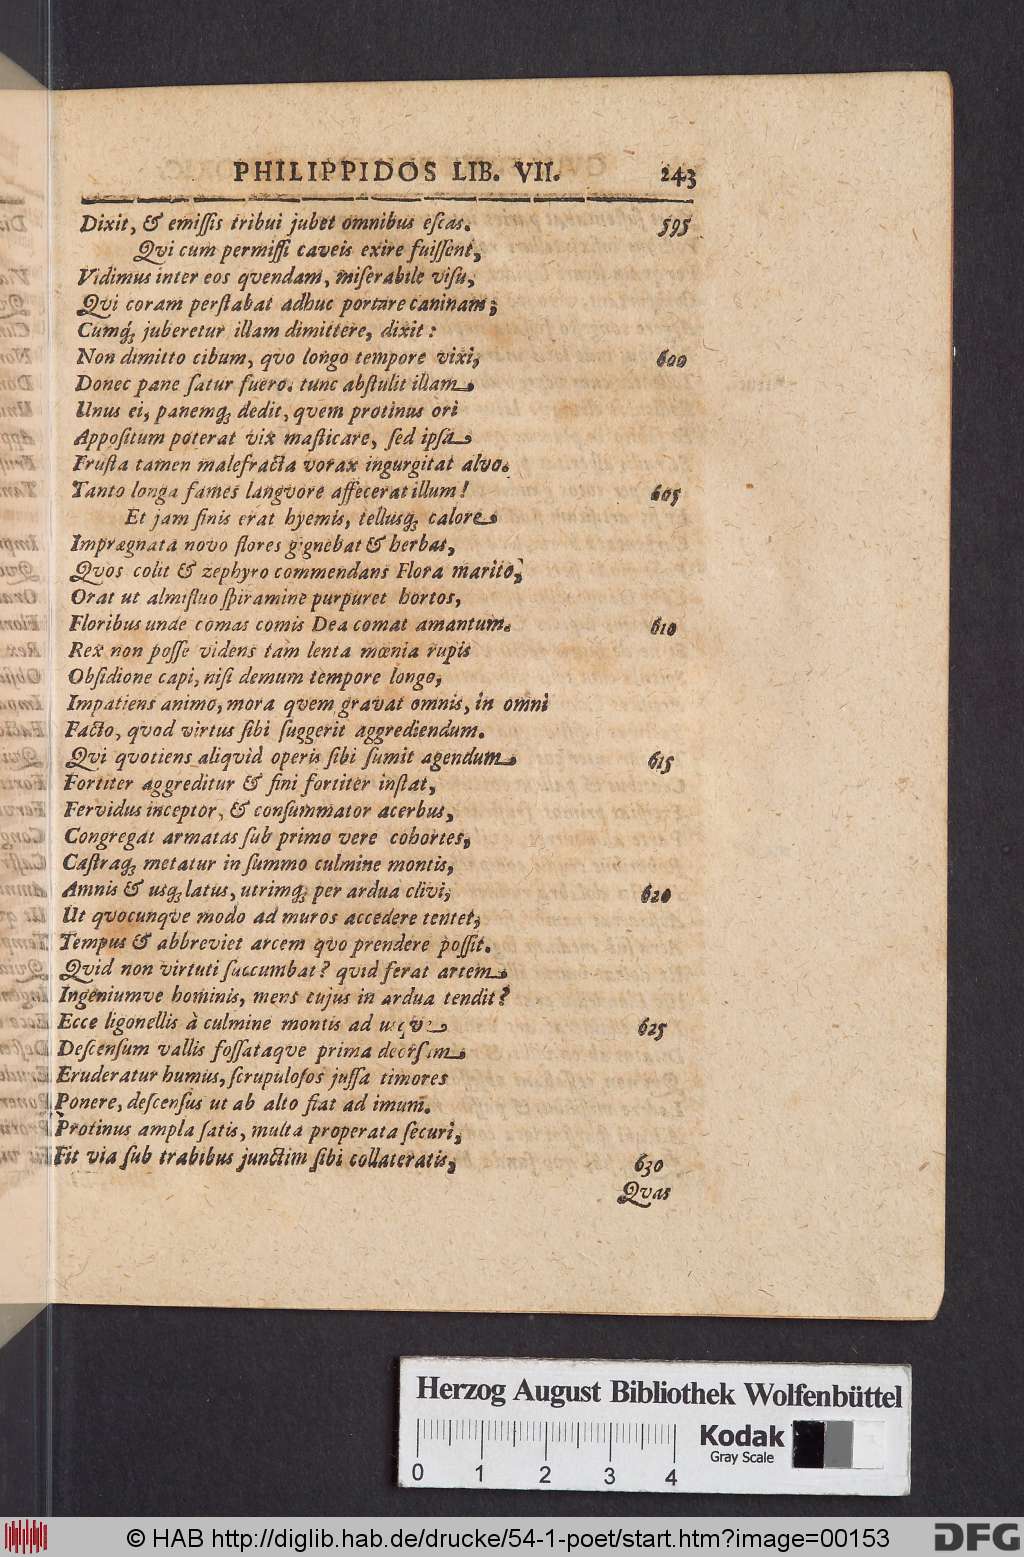 PHILIPPIDOS LIB. VII. 243
Dixit, & emiſſis tribui jubet omnibus eſcas. 595
Qui cum permiſſi caveis exire fuiſſent,
Vidimus inter eos quendam, miſerabile viſu,
Qui coram perſtabat adhuc portare caninam;
Cumq́ꝫ juberetur illam dimittere, dixit:
Non dimitto cibum, quo longo tempore vixi, 600
Donec pane ſatur fuero. tunc abſtulit illam
Unus ei, panemqꝫ dedit, quem protinus ori
Appoſitum poterat vix maſticare, ſed ipſa
Fruſta tamen malefracta vorax ingurgitat alvo.
Tanto longa fames langvore affecerat illum! 605
Et jam finis erat hyemis, tellusqꝫ calore
Imprægnata novo flores gignebat & herbas,
Quos colit & zephyro commendans Flora marito,
Orat ut almifluo ſpiramine purpuret hortos,
Floribus unde comas comis Dea comat amantum. 610
Rex non poſſe videns tam lenta mœnia rupis
Obſidione capi, niſi demum tempore longo,
Impatiens animo, mora quem gravat omnis, in omni
Facto, quod virtus ſibi ſuggerit aggrediendum.
Qui quotiens aliquid operis ſibi ſumit agendum 615
Fortiter aggreditur & fini fortiter inſtat,
Fervidus inceptor, & conſummator acerbus,
Congregat armatas ſub primo vere cohortes,
Caſtraqꝫ metatur in ſummo culmine montis,
Amnis & usqꝫ latus, utrimqꝫ per ardua clivi, 620
Ut quocunqve modo ad muros accedere tentet,
Tempus & abbreviet arcem quo prendere poſſit.
Quid non virtuti ſuccumbat? quid ferat artem
Ingeniumve hominis, mens cujus in ardua tendit?
Ecce ligonellis à culmine montis ad usqve 625
Deſcenſum vallis foſſataque prima deorſum
Eruderatur humus, ſcrupuloſos juſſa timores
Ponere, deſcenſus ut ab alto fiat ad imum.
Protinus ampla ſatis, multa properata ſecuri,
Fit via ſub trabibus junctim ſibi collateratis, 630
Qvas
Herzog August Bibliothek Wolfenbüttel
0 1 2 3 4
Kodak
Gray Scale
© HAB http://diglib.hab.de/drucke/54-1-poet/start.htm?image=00153
DFG